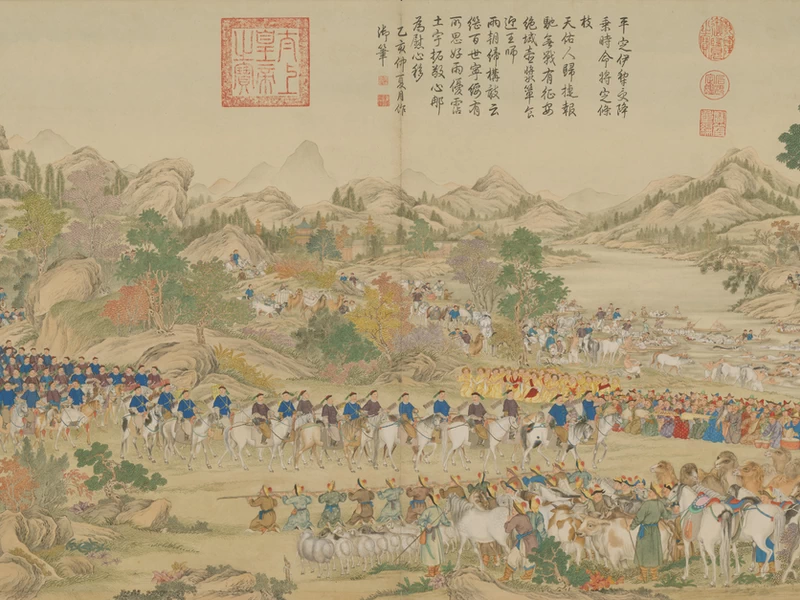 平定伊犂受降
乘時命將定條
枝
天佑人歸捷報
馳無戰有征安
絕域壺漿簞食
迎王師
兩朝締構敢云
繼百世寧綏有
所思好雨優霑
土宇拓敬心那
為慰心移
乙亥仲夏月作
御筆
太上
皇帝
之寶